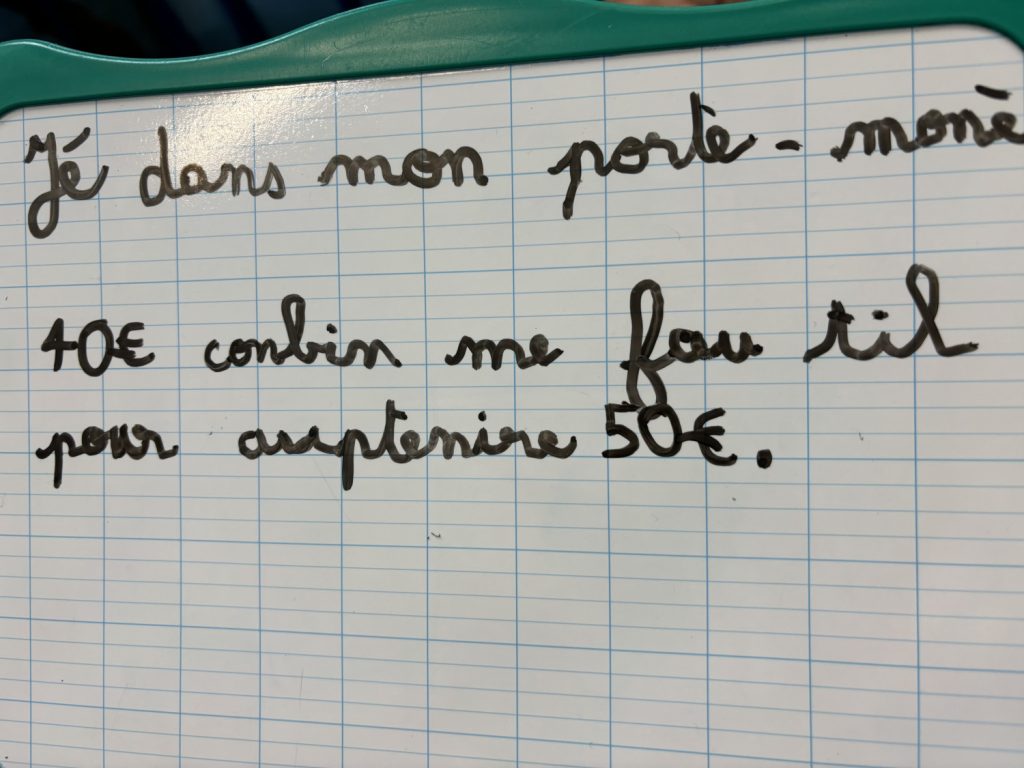 Jé dans mon porte-monè
40€ conbin me fau til
pour auptenire 50€.